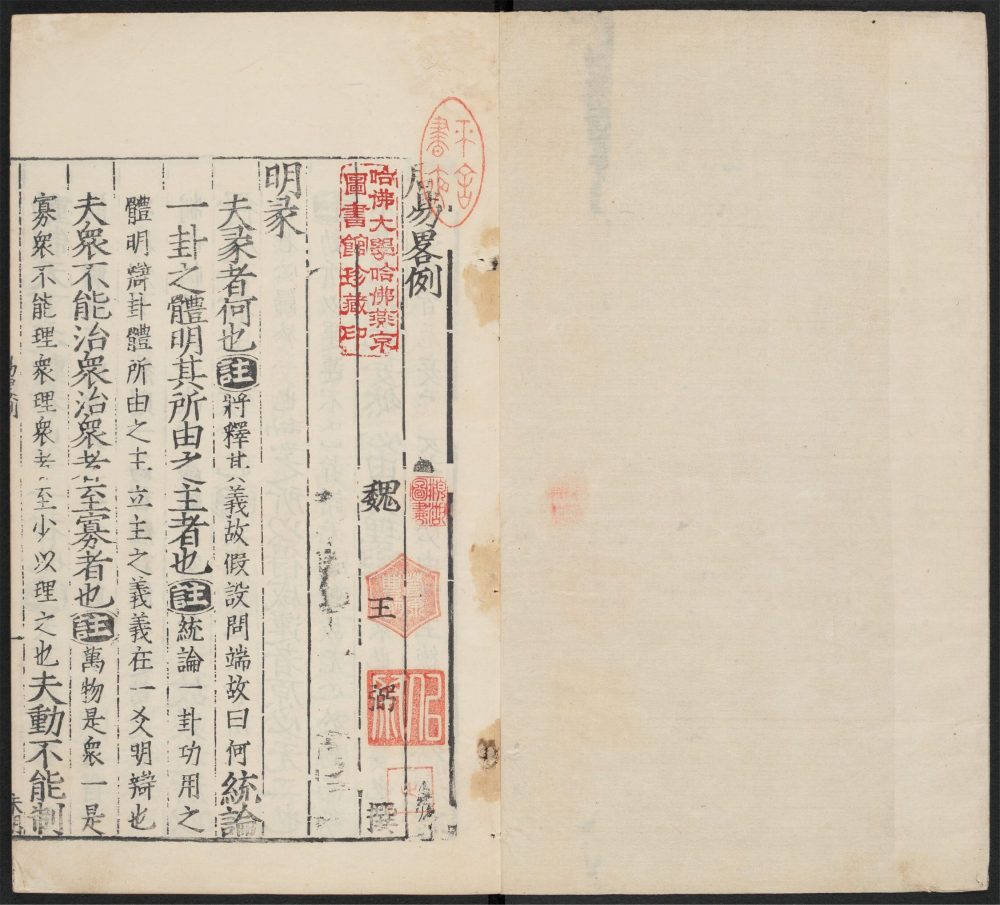 周易畧例
魏 王 弼 撰
明彖
夫彖者何也註將釋其義故假設問端故曰何統論
一卦之體明其所由之主者也註統論一卦功用之
體明辯卦體所由之主立主之義義在一爻明辯也
夫衆不能治衆治衆者至寡者也註萬物是衆一是
寡衆不能理衆理衆者至少以理之也夫動不能制
哈佛大學哈佛燕京
圖書館珍藏印